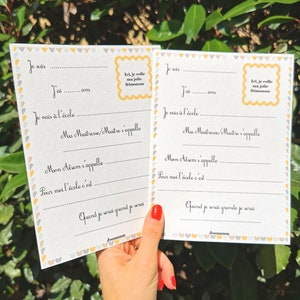 Je suis
Ici, je colle
ma jolie
frimousse
J'ai ........ ans
Je vais à l'école
Ma Maîtresse/Maître s'appelle
Mon Atsem s'appelle
Pour moi l'école c'est
Quand je serai grand je serai
Je suis
Ici, je colle
ma jolie
frimousse
J'ai ........ ans
Je vais à l'école
Ma Maîtresse/Maître s'appelle
Mon Atsem s'appelle
Pour moi l'école c'est
Quand je serai grande je serai